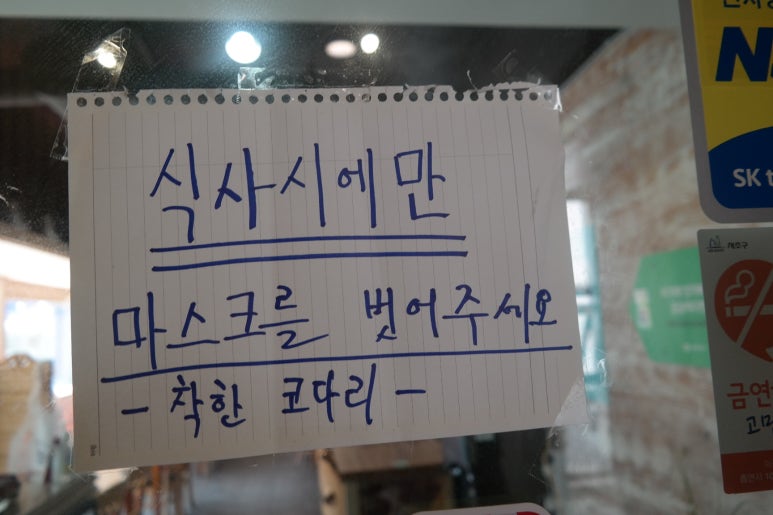 식사시에만
마스크를 벗어주세요
- 착한 코다리 -
SK t
서초구
금연